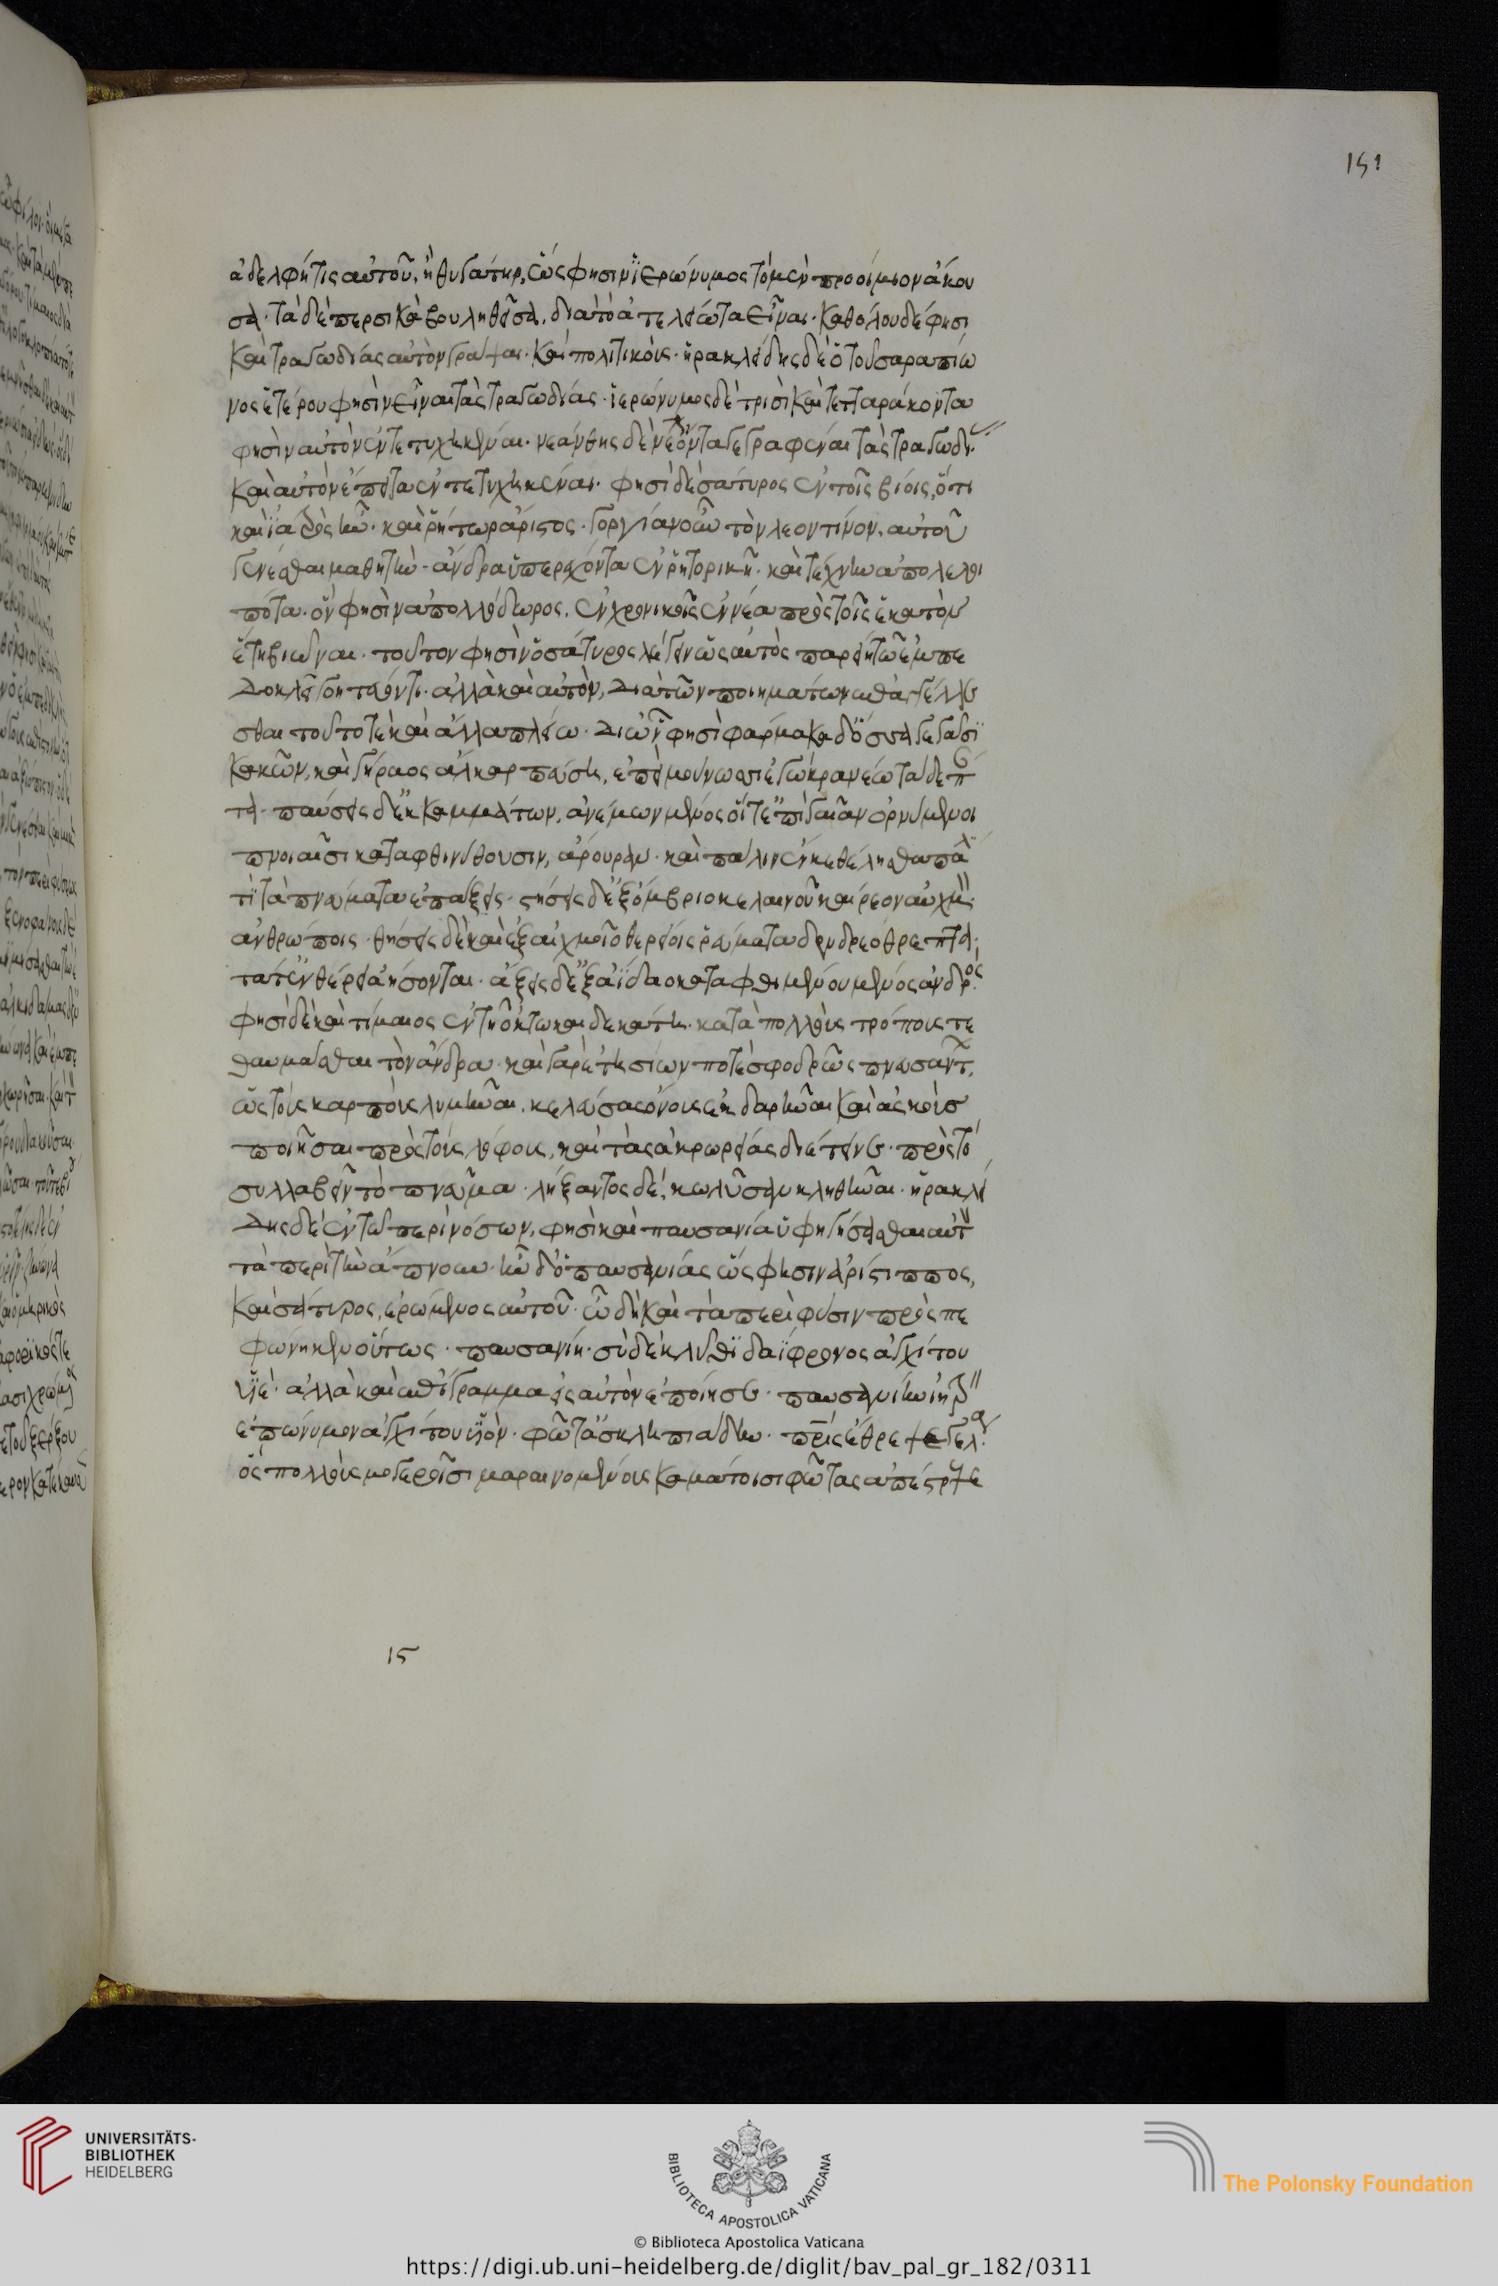 151
ἀδελφή τις αὐτοῦ, ἢ θυγάτηρ, ὥς φησιν ἱερώνυμος τὸ μὲν προοίμιον ἄκου
σα· τὰ δὲ περσικὰ βουληθεῖσα, διὰ τὸ ἀτελείωτα εἶναι· καθόλου δέ φησι
καὶ τραγωδίας αὐτὸν γράψαι· καὶ πολιτικούς· ἡρακλείδης δὲ ὁ τοῦ σαραπίω
νος ἑτέρου φησὶν εἶναι τὰς τραγωδίας· ἱερώνυμος δὲ τρισὶ καὶ τετταράκοντα
φησὶν αὐτὸν ἐντετυχηκέναι· νεάνθης δὲ νέον ὄντα γεγραφέναι τὰς τραγωδί
καὶ αὐτὸν ἔπειτα ἐντετυχηκέναι· φησὶ δὲ σάτυρος ἐν τοῖς βίοις, ὅτι
καὶ ἰατρὸς ἦν· καὶ ῥήτωρ ἄριστος· γοργίαν οὖν τὸν λεοντῖνον, αὐτοῦ
γενέσθαι μαθητὴν· ἄνδρα ὑπερέχοντα ἐν ῥητορικῇ· καὶ τέχνην ἀπολελοι
πότα· ὅν φησὶν ἀπολλόδωρος, ἐν χρονικοῖς ἐννέα πρὸς τοῖς ἑκατὸν
ἔτη βιῶναι· τοῦτον φησὶν ὁ σάτυρος λέγειν ὡς αὐτὸς παρείη τῷ ἐμπε
δοκλεῖ γοητεύοντι· ἀλλὰ καὶ αὐτὸν, διὰ τῶν ποιημάτων ἐπαγγέλλε
σθαι τοῦτο τὲ καὶ ἄλλα πλείω· δι' ὧν φησὶ φάρμακα δ' ὅσσα γεγᾶσι
κακῶν, καὶ γήραος ἄλκαρ πεύσῃ, ἐπεὶ μούνω σοὶ ἐγὼ κρανέω τάδε π
τα· παύσεις δ' ἐκ καμμάτων, ἀνέμων μένος οἵ τ' ἐπὶ γαῖαν ὀρνύμενοι
πνοιαῖσι καταφθινύθουσιν, ἄρουραν· καὶ πάλιν ἢν κε θέλησθα πα
τι τὰ πνεύματα ἐπάξεις· στήσεις δ' ἐξ ὄμβριο κελαινοῦ καίρεον αὐχμ
ἀνθρώποις· θήσεις δὲ καὶ ἐξ αὐχμοῖο θερείοις ῥεύματα δενδρεόθρεπτα·
τά τ' ἐν θέρει ἀήσονται· ἄξεις δ' ἐξ ἀΐδαο καταφθιμένου μένος ἀνδρός·
φησὶ δὲ καὶ τίμαιος ἐν τῇ ὀκτωκαιδεκάτῃ· κατὰ πολλοὺς τρόπους τε
θαυμάσθαι τὸν ἄνδρα· καὶ γὰρ ἐτησίων ποτὲ σφοδρῶς πνευσάντ
ὡς τοὺς καρποὺς λυμῆναι, κελεύσας ὄνους ἐκδαρῆναι καὶ ἀσκοὺς
ποιῆσαι πρὸς τοὺς λόφους, καὶ τὰς ἀκρωρείας διέτεινε· πρὸς τὸ
συλλαβεῖν τὸ πνεῦμα· λήξαντος δέ, κωλυσάνεμ κληθῆναι· ἡρακλεί
δης δὲ ἐν τῷ περὶ νόσων, φησὶ καὶ παυσανία ὑφηγήσασθαι αὐτ
τὰ περὶ τὴν ἄπνουν· ἦν δ' ὁ παυσανίας ὥς φησιν ἀρίστιππος,
καὶ σάτυρος, ἐρώμενος αὐτοῦ· ὧ δὴ καὶ τὰ περὶ φύσιν προσπε
φώνηκεν οὕτως· παυσανίη· σὺ δὲ κλῦθι δαΐφρονος ἀγχίτου
υἱέ· ἀλλὰ καὶ ἐπίγραμμα εἰς αὐτὸν ἐποίησε· παυσανίην ἰητρ
ἐπώνυμον ἀγχίτου υἱόν· φῶτ' ἀσκληπιάδην· πρὶς ἔθρεψε γέλα·
ὃς πολλοὺς μογεροῖσι μαραινομένους καμάτοισι φῶτας ἀπέστρεψε
15
UNIVERSITÄTS-
BIBLIOTHEK
HEIDELBERG
BIBLIOTECA APOSTOLICA VATICANA
The Polonsky Foundation
© Biblioteca Apostolica Vaticana
https://digi.ub.uni-heidelberg.de/diglit/bav_pal_gr_182/0311